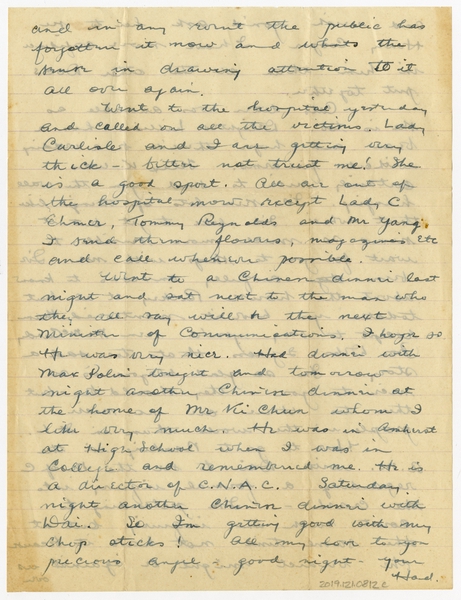 and in any event the public has
forgotten it now and whats the
sense in drawing attention to it
all over again.
Went to the hospital yesterday
and called on all the victims. Lady
Carlisle and I are getting very
thick - better not trust me! She
is a good sport. All are out of
the hospital now except Lady C
Elmer, Tommy Reynolds and Mr Yang.
I send them flowers, magazines etc
and call whenever possible.
Went to a Chinese dinner last
night and sat next to the man who
they all say will be the next
Minister of Communications. I hope so
He was very nice. Had dinner with
Max Polin tonight and tomorrow
night another Chinese dinner at
the home of Mr Nii Chun whom I
like very much. He was in Amherst
at High School when I was in
College and remembered me. He is
a director of C.N.A.C. Saturday
night another Chinese dinner with
Dai. So I'm getting good with my
Chop sticks! All my love to you
precious angel good night - your
Had.
2019.121.0812 c